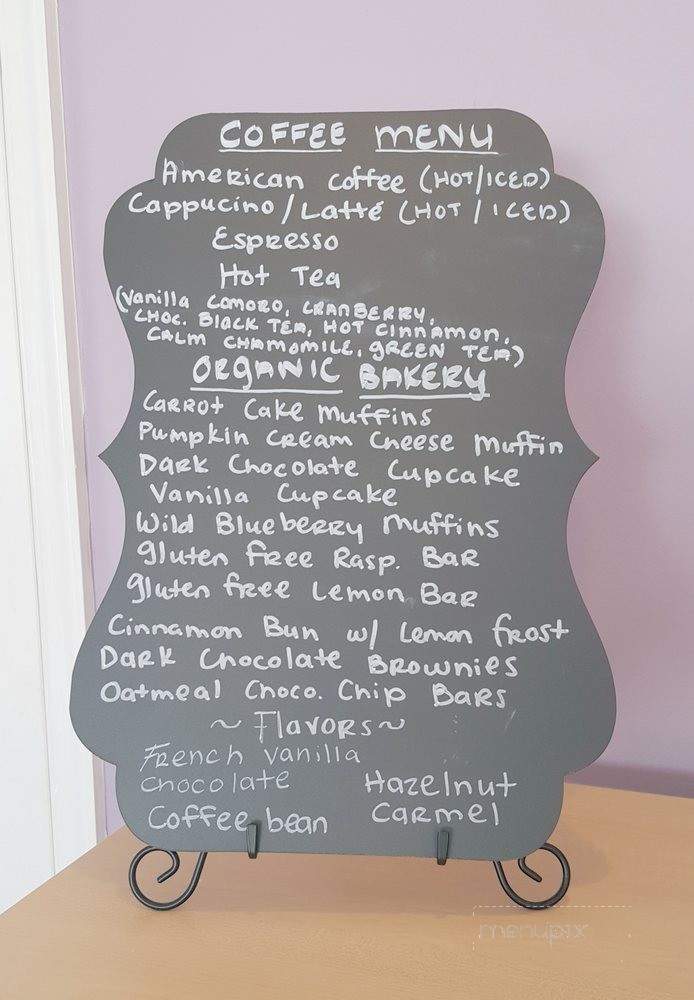 COFFEE MENU
American coffee (HOT/ICED)
Cappucino/Latté (HOT/ICED)
Espresso
Hot Tea
(Vanilla Comoro, CRANBERRY,
CHOC. Black TEA, HOT Cinnamon,
CALM CHAMOMILE, GREEN TEA)
ORGANIC BAKERY
CARROT Cake Muffins
Pumpkin CREAM Cheese Muffin
Dark Chocolate Cupcake
Vanilla Cupcake
Wild Blueberry Muffins
gluten free Rasp. BAR
gluten free Lemon BAR
Cinnamon Bun w/ Lemon frost
DARK Chocolate BROWNIES
Oatmeal Choco. Chip BARS
~ Flavors ~
French Vanilla
Chocolate Hazelnut
Coffee bean CARMEL
menupix